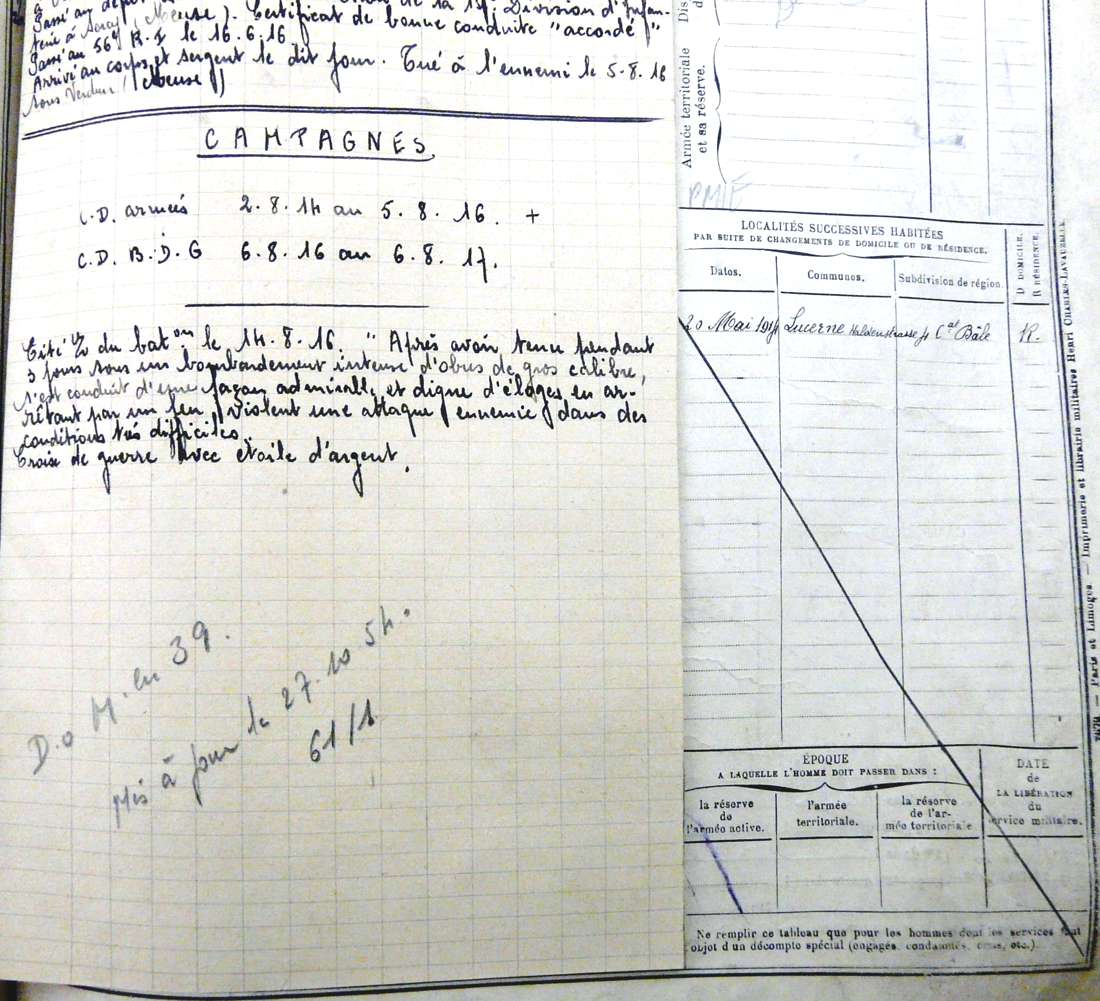 Passé au dépôt de la Division d'Infan-
(Meuse). Certificat de bonne conduite "accordé"
Passé au 56e R.I le 16.6.16
Arrivé au corps et sergent le dit jour. Tué à l'ennemi le 5.8.16
sous Verdun (Meuse)
CAMPAGNES
C.D. armées 2.8.14 au 5.8.16. +
C.D. B.D.G 6.8.16 au 6.8.17.
Cité du baton le 14.8.16. "Après avoir tenu pendant
3 jours sous un bombardement intense d'obus de gros calibre,
s'est conduit d'une façon admirable et digne d'éloges en ar-
rêtant par un feu violent une attaque ennemie dans des
conditions très difficiles.
Croix de guerre avec étoile d'argent.
D.o M. en 39.
mis à jour le 27.10 54.
61/1
Armée territoriale
et sa réserve.
PMIF
LOCALITÉS SUCCESSIVES HABITÉES
PAR SUITE DE CHANGEMENTS DE DOMICILE OU DE RÉSIDENCE.
Dates.
Communes.
Subdivision de région.
D DOMICILE.
R RÉSIDENCE.
20 Mai Lucerne Haldenstrasse Cal Bâle R.
ÉPOQUE
A LAQUELLE L'HOMME DOIT PASSER DANS :
la réserve
de
l'armée active.
l'armée
territoriale.
la réserve
de l'ar-
mée territoriale
DATE
de
LA LIBÉRATION
du
service militaire.
Ne remplir ce tableau que pour les hommes dont les services font
objet d'un décompte spécial (engagés, condamnés, omis, etc.).
Paris et Limoges. — Imprimerie et librairie militaires Henri CHARLES-LAVAUZELLE